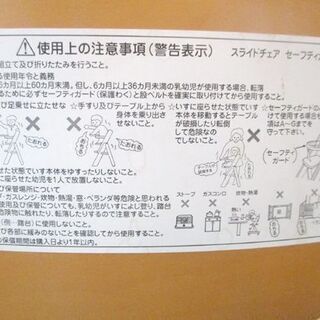 ⚠使用上の注意事項(警告表示) スライドチェア セーフティ
組立て及び折りたたみを行うこと。
る使用年令と義務
6カ月以上60カ月未満。但し、6カ月以上36カ月未満の乳幼児が使用する場合、転落
るために必ずセーフティガード(保護わく)と股ベルトを確実に取り付けてから使用
び足乗せに立たせな
☆手すり及びテーブル上から身体を乗り出さないで
☆いすに座らせた状態で本体を移動するとテーブルが破損したり転倒して危険なのでしないで
☆セーフティガードの
いすに座らせる場
法はA〜Gまで
守ってください
たおれる
たおれる
セーフティガード
た状態でいす本体をゆすったりしない
に座らせた幼児を1人で放置しないこと。
び保管場所について
・ガスレンジ・炊物・熱湯・窓・ベランダ等危険と思われる
使用及び保管についても、乳幼児がいすによじ登り、踏台
危険物に触れたり、転落したりするので注意すること。
ストーブ ガスコンロ 炊物・熱湯 窓
(例…踏台)
び各部に緩みのないことを確認してから使用すること。
の保価期間は購入日より1年以内。